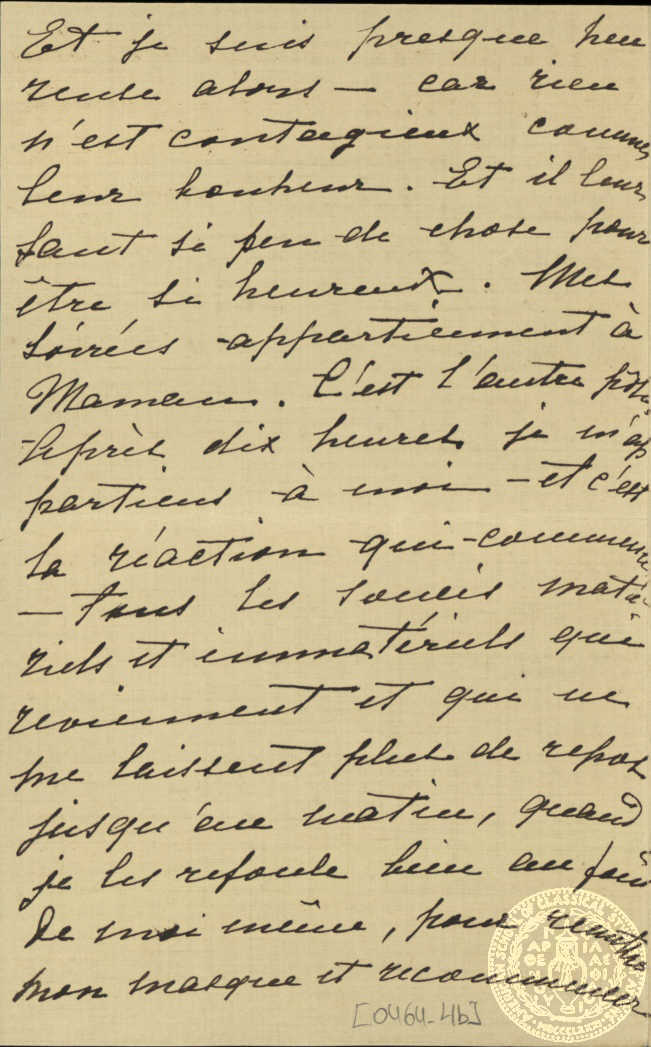 Et je suis presque heu
reuse alors — car rien
n'est contagieux comme
leur bonheur. Et il leur
faut si peu de chose pour
être si heureux. Mes
soirées appartiennent à
Maman. C'est l'autre pôle.
Après dix heures je m'ap
partiens à moi — et c'est
la réaction qui commence
— tous les soucis maté-
riels et immatériels qui
reviennent et qui ne
me laissent plus de repos
jusqu'au matin, quand
je les refoule bien au fond
de moi même, pour remettre
mon masque et recommencer
[0464-4b]